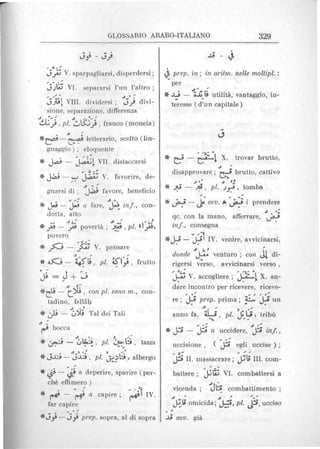 GLOSSARIO ARABO-ITALIANO 329
فرق - فرق
تفرق V. sparpagliarsi, disperdersi;
تفارق VI. separarsi l'un l'altro;
افترق VIII. dividersi; فرق divi-
sione, separazione, differenza
فرنك, pl. فرنكات, franco (moneta)
* فصيح letterario, scelto (lin-
guaggio); eloquente
* فصل — انفصل VII. distaccarsi
* فضل — تفضل V. favorire, de-
gnarsi di; فضل favore, beneficio
* فعل — فعل a fare, فعل inf., con-
dotta, atto
* فقر — فقر povertà; فقير, pl. فقراء,
povero
* فكر — تفكر V. pensare
* فكه — فاكهة, pl. فواكه, frutto
ف = فلان
* فلح — فلاح, con pl. sano m., con-
tadino, fellāḥ
* فلن — فلان Tal dei Tali
فم bocca
* فنجن — فنجان, pl. فناجين, tazza
* فندق — فندق, pl. فنادق, albergo
* فني — فني a deperire, sparire (per-
ché effimero)
* فهم — فهم a capire; افهم IV.
far capire
* فوق — فوق prep. sopra, al di sopra
في - قد
في prep. in; in aritm. nelle moltipl.:
per
* فيد — فائدة utilità, vantaggio, in-
teresse (d'un capitale)
ق
* قبح — استقبح X. trovar brutto,
disapprovare; قبيح brutto, cattivo
* قبر — قبر, pl. قبور, tomba
* قبض — قبض avv. ب i prendere
qc. con la mano, afferrare, قبض
inf., consegna
* قبل — اقبل IV. venire, avvicinarsi,
donde مقبل venturo; con على di-
rigersi verso, avvicinarsi verso,
تقبل V. accogliere; استقبل X. an-
dare incontro per ricevere, riceve-
re; قبل prep. prima; قبل سنة un
anno fa, قبيلة, pl. قبائل, tribù
* قتل — قتل u uccidere, قتل inf.,
uccisione, (قتل egli uccise);
قتل II. massacrare; قاتل III. com-
battere; تقاتل VI. combattersi a
vicenda; قتال combattimento;
قاتل omicida; قتيل, pl. قتلى, ucciso
قد avv. già